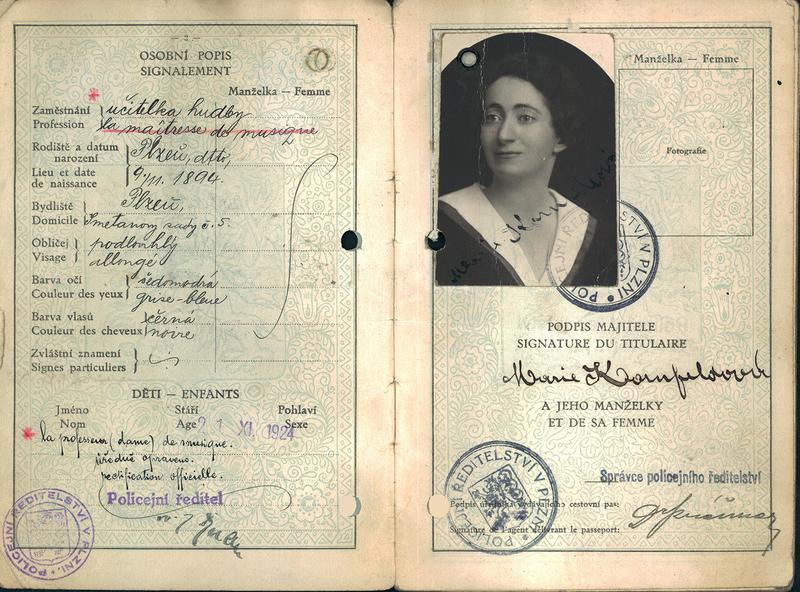 - 2 -
OSOBNÍ POPIS
SIGNALEMENT
Manželka – Femme
Zaměstnání učitelka hudby
Profession la maîtresse de musique
Rodiště a datum narození Plzeň, dtto,
Lieu et date de naissance 9./11. 1894.
Bydliště Plzeň,
Domicile Smetanovy sady č. 5.
Obličej podlouhlý
Visage allongé
Barva očí šedomodrá
Couleur des yeux grise-bleue
Barva vlasů černá
Couleur des cheveux noire
Zvláštní znamení
Signes particuliers
DĚTI – ENFANTS
Jméno Stáří Pohlaví
Nom Age Sexe
21 XI. 1924
la professeur (dame) de musique.
úředně opraveno.
rectification officielle.
Policejní ředitel
POLICEJNÍ ŘEDITELSTVÍ V PLZNI
Manželka – Femme
Fotografie
POLICEJNÍ ŘEDITELSTVÍ V PLZNI
PODPIS MAJITELE
SIGNATURE DU TITULAIRE
Marie
A JEHO MANŽELKY
ET DE SA FEMME
POLICEJNÍ ŘEDITELSTVÍ V PLZNI
Správce policejního ředitelství
Podpis úředníka vydávajícího cestovní pas:
Signature de l'agent délivrant le passeport: